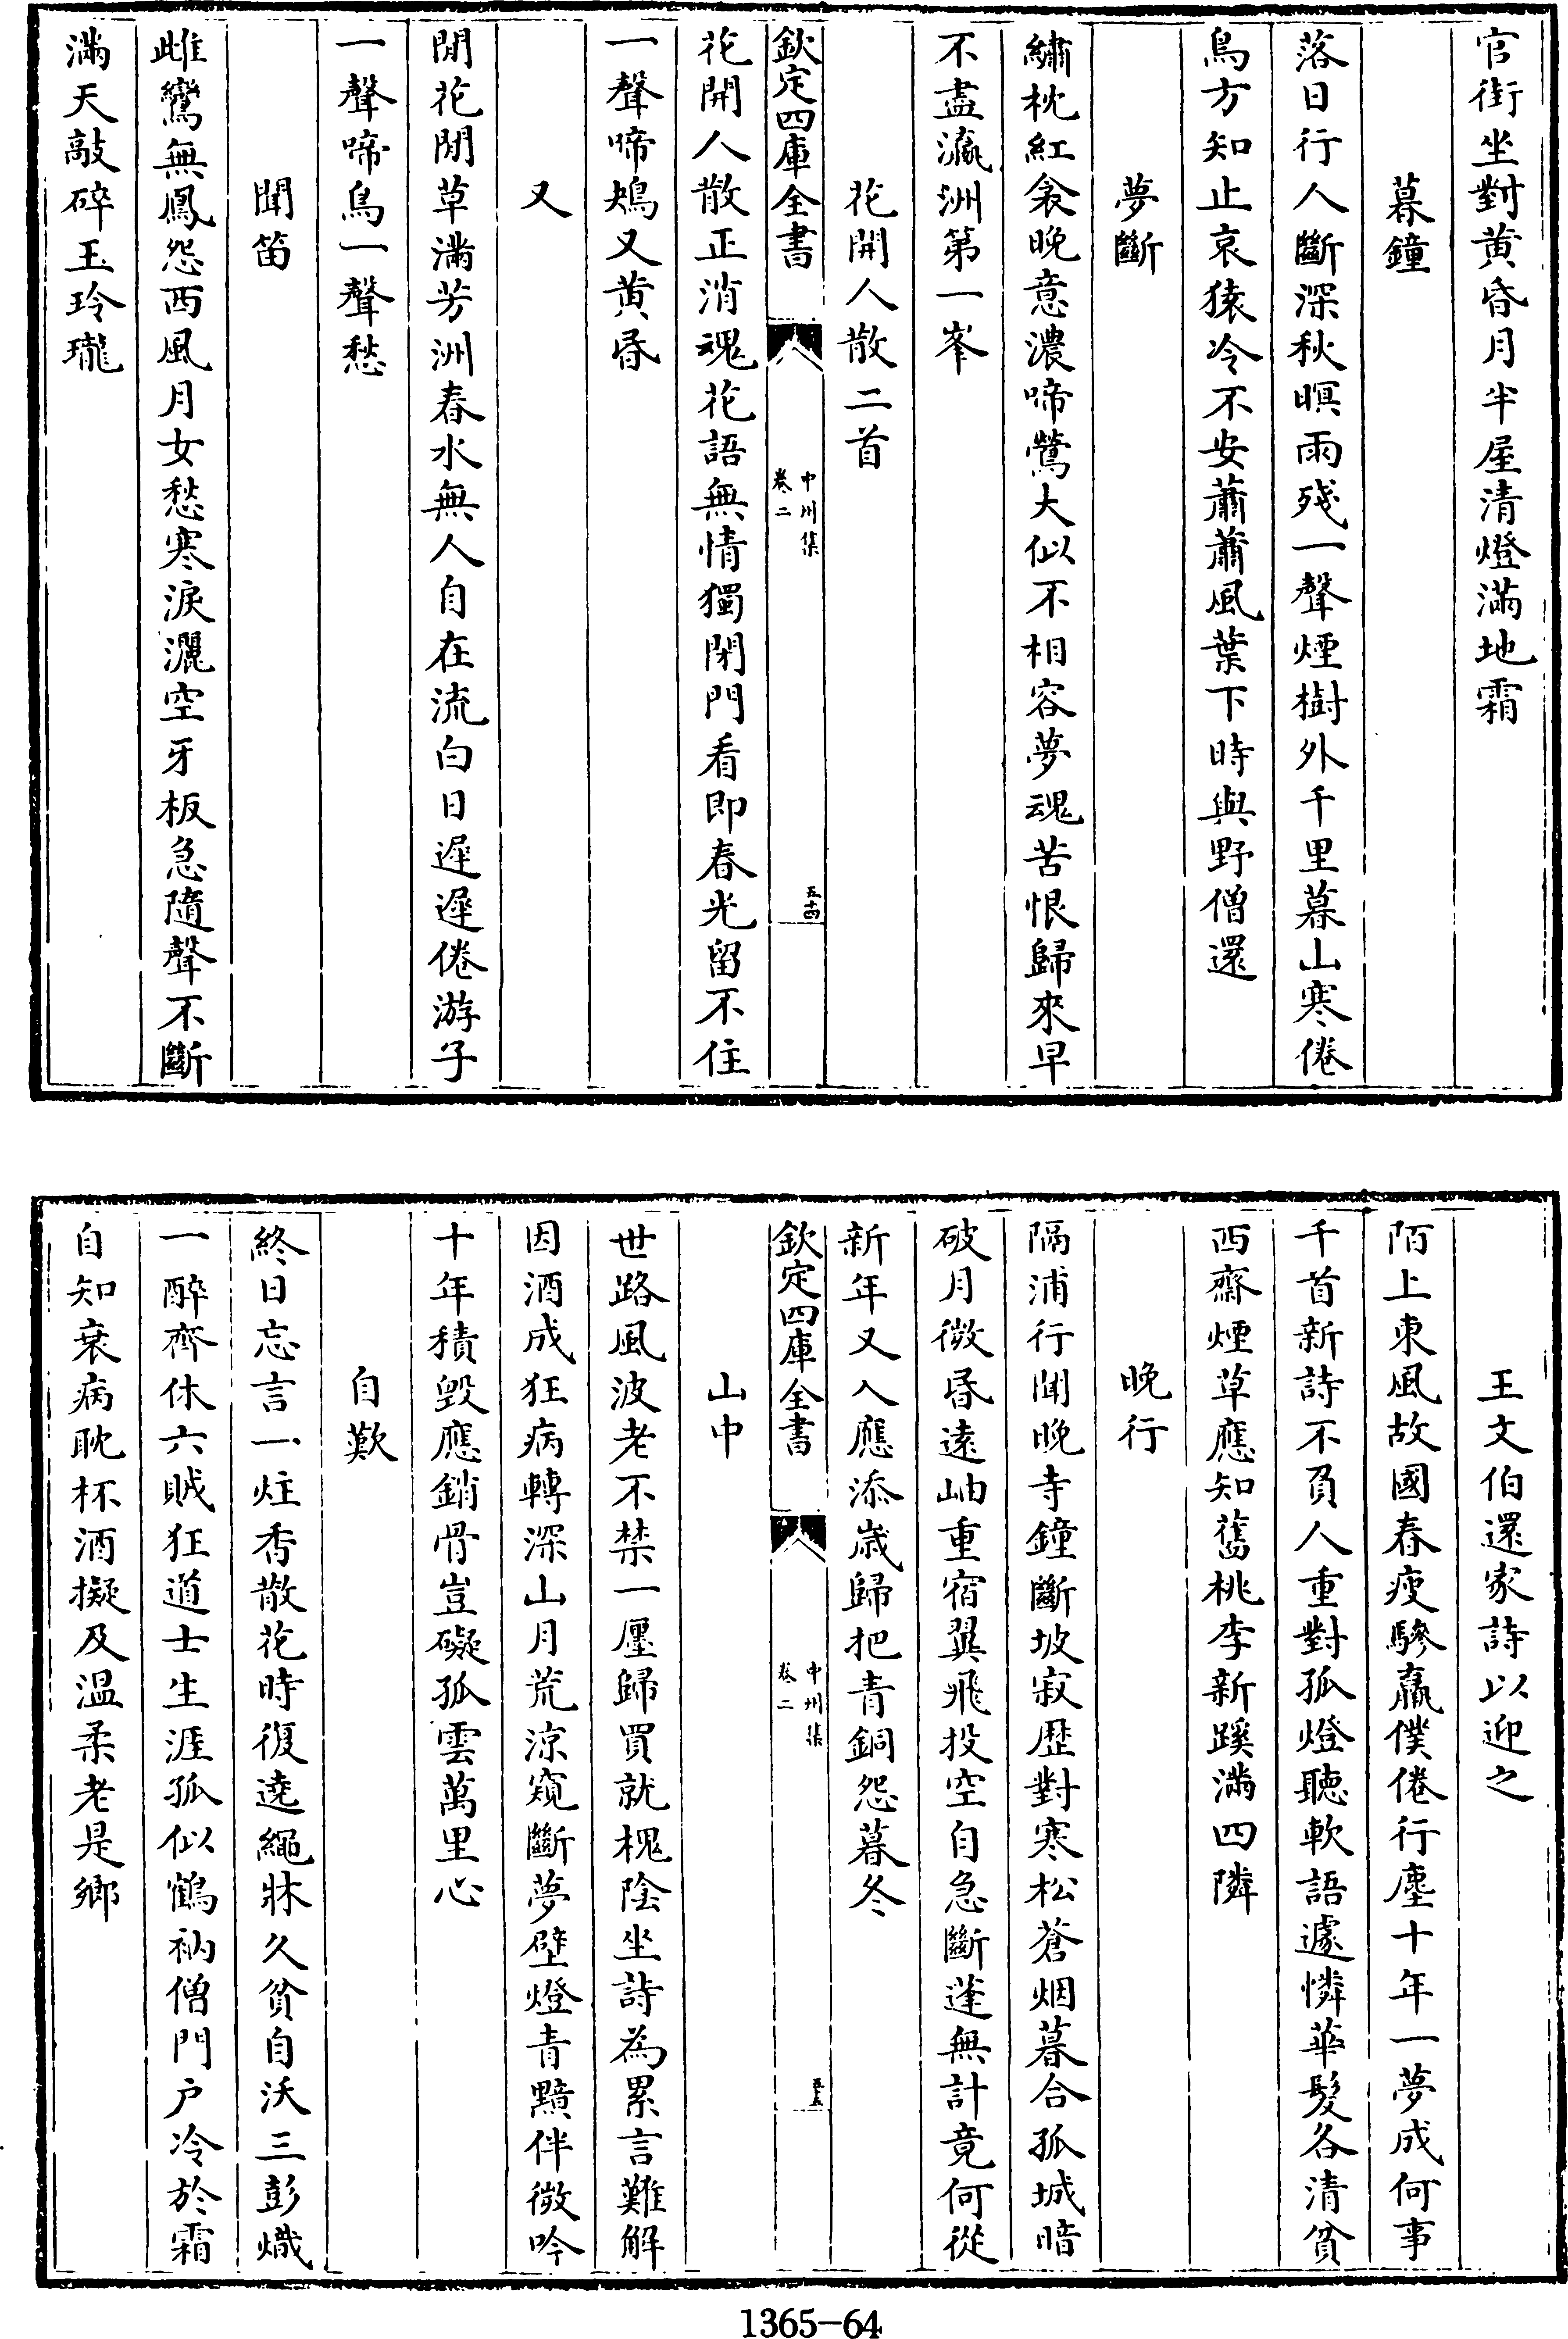 官街坐對黄昏月半屋清燈滿地霜
暮鐘
落日行人斷深秋暝雨殘一聲煙樹外千里暮山寒倦
鳥方知止哀猿冷不安蕭蕭風葉下時與野僧還
夢斷
繡枕紅衾晚意濃啼鶯大似不相容夢魂苦恨歸來早
不盡瀛洲第一峯
花開人散二首
欽定四庫全書
中州集
卷二
五十四
花開人散正消魂花語無情獨閉門看即春光留不住
一聲啼鴂又黄昏
又
閒花閒草滿芳洲春水無人自在流白日遲遲倦游子
一聲啼鳥一聲愁
聞笛
雌鸞無鳳怨西風月女愁寒淚灑空牙板急隨聲不斷
滿天敲碎玉玲瓏
王文伯還家詩以迎之
陌上東風故國春瘦驂羸僕倦行塵十年一夢成何事
千首新詩不負人重對孤燈聽軟語遽憐華髮各清貧
西齋煙草應知舊桃李新蹊滿四隣
晚行
隔浦行聞晚寺鐘斷坡寂歴對寒松蒼烟暮合孤城暗
破月微昏遠岫重宿翼飛投空自急斷蓬無計竟何從
新年又入應添歲歸把青銅怨暮冬
欽定四庫全書
中州集
卷二
五十五
山中
世路風波老不禁一廛歸買就槐陰坐詩為累言難解
因酒成狂病轉深山月荒涼窺斷夢壁燈青黯伴微吟
十年積毀應銷骨豈礙孤雲萬里心
自歎
終日忘言一炷香散花時復遶繩牀久貧自沃三彭熾
一醉齊休六賊狂道士生涯孤似鶴衲僧門户冷於霜
自知衰病耽杯酒擬及温柔老是鄉
1365-64